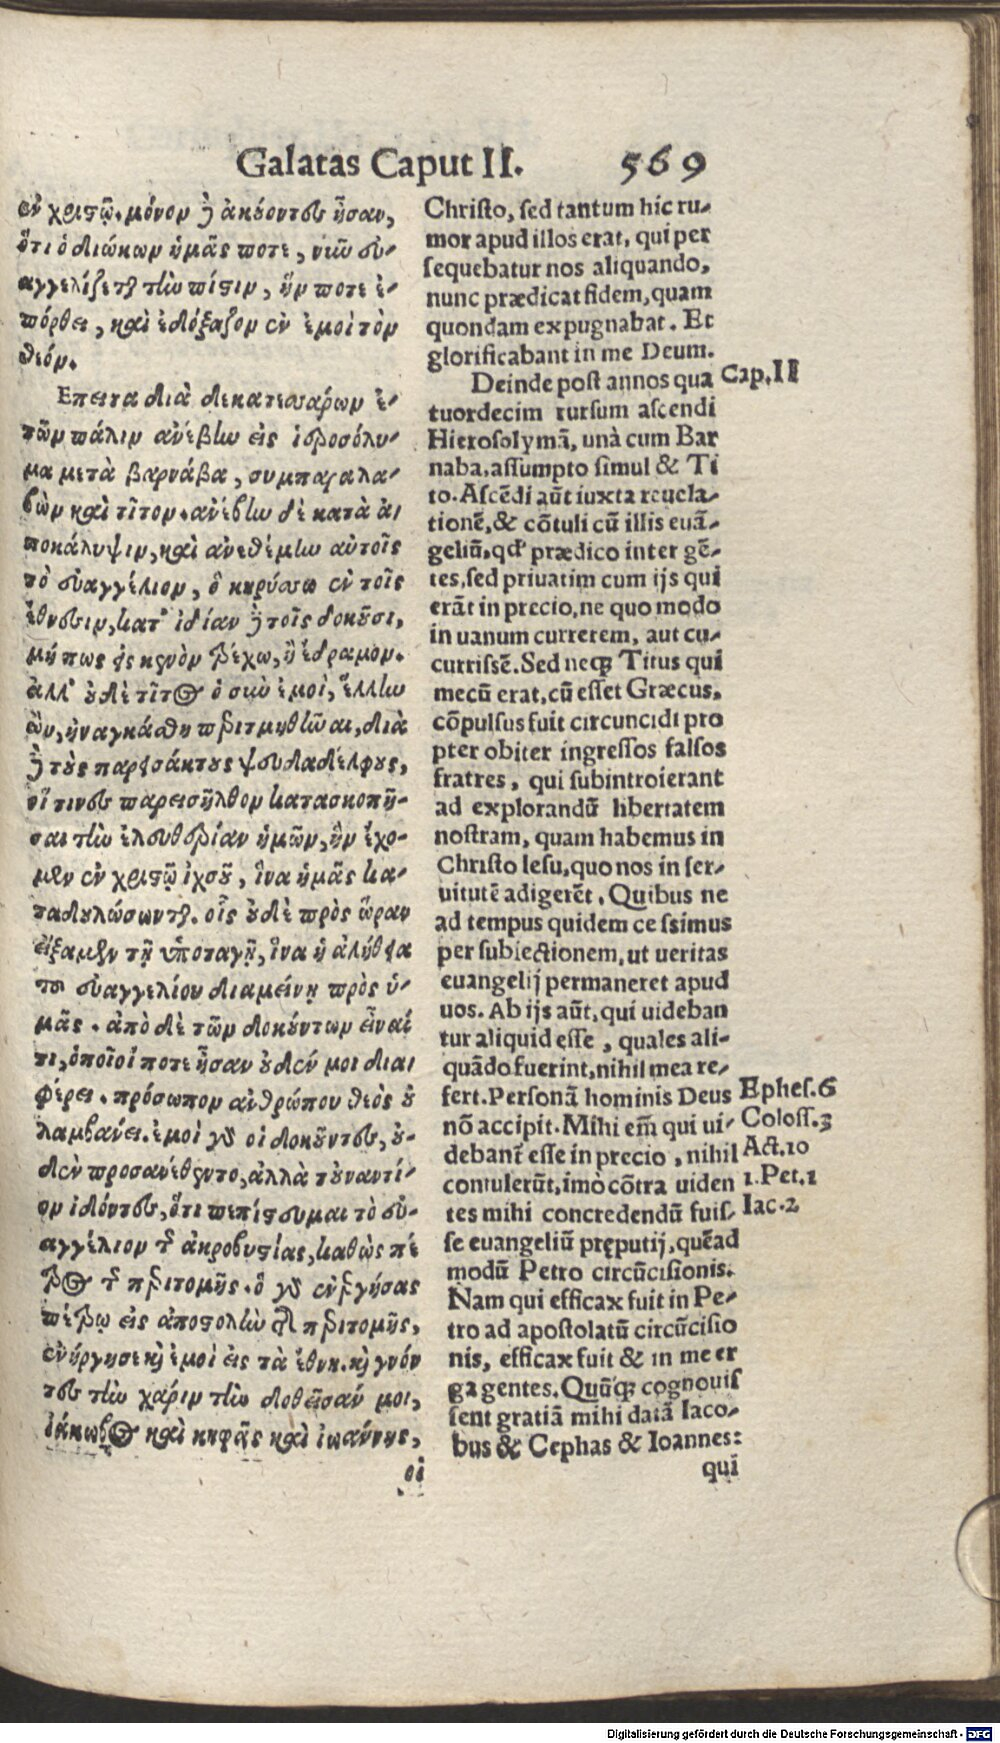 Galatas Caput II. 569
ἐν χριστῷ. μόνον δὲ ἀκούοντες ἦσαν,
ὅτι ὁ διώκων ἡμᾶς ποτε, νιῦ εὐ-
αγγελίζεται τὴν πίστιν, ἥν ποτε ἐ-
πόρθει, καὶ ἐδόξαζον ἐν ἐμοὶ τὸν
θεόν.
Επειτα διὰ δεκατεσσάρων ἐ-
τῶν πάλιν ἀνέβην εἰς ἱεροσόλυ-
μα μετὰ βαρνάβα, συμπαραλα-
βὼν καὶ τῖτον. ἀνέβην δὲ κατὰ ἀ-
ποκάλυψιν, καὶ ἀνεθέμην αὐτοῖς
τὸ εὐαγγέλιον, ὃ κηρύσσω ἐν τοῖς
ἔθνεσιν, κατ' ἰδίαν δὲ τοῖς δοκοῦσι,
μήπως εἰς κενὸν τρέχω, ἢ ἔδραμον.
ἀλλ' οὐδὲ τῖτος ὁ σὺν ἐμοὶ, ἕλλην
ὢν, ἠναγκάσθη περιτμηθῆναι, διὰ
δὲ τοὺς παρεισάκτους ψευδαδέλφους,
οἵ τινες παρεισῆλθον κατασκοπῆ-
σαι τὴν ἐλευθερίαν ἡμῶν, ἣν ἔχο-
μεν ἐν χριστῷ ἰησοῦ, ἵνα ἡμᾶς κα-
ταδουλώσωνται. οἷς οὐδὲ πρὸς ὥραν
εἴξαμεν τῇ ὑποταγῇ, ἵνα ἡ ἀλήθεια
τοῦ εὐαγγελίου διαμείνῃ πρὸς ὑ-
μᾶς. ἀπὸ δὲ τῶν δοκούντων εἶναί
τι, ὁποῖοί ποτε ἦσαν οὐδέν μοι δια
φέρει. πρόσωπον ἀνθρώπου θεὸς οὐ
λαμβάνει. ἐμοὶ γὰρ οἱ δοκοῦντες, οὐ-
δὲν προσανέθεντο, ἀλλὰ τοὐναντί-
ον ἰδόντες, ὅτι πεπίστευμαι τὸ εὐ-
αγγέλιον τῆς ἀκροβυστίας, καθὼς πέ
τρος τῆς περιτομῆς. ὁ γὰρ ἐνεργήσας
πέτρῳ εἰς ἀποστολὴν τῆς περιτομῆς,
ἐνήργησε καὶ ἐμοὶ εἰς τὰ ἔθνη. καὶ γνόν
τες τὴν χάριν τὴν δοθεῖσάν μοι,
ἰάκωβος καὶ κηφᾶς καὶ ἰωάννης,
οἱ
Christo, sed tantum hic ru-
mor apud illos erat, qui per
sequebatur nos aliquando,
nunc prædicat fidem, quam
quondam expugnabat. Et
glorificabant in me Deum.
Deinde post annos qua
tuordecim rursum ascendi
Hierosolymā, unà cum Bar
naba, assumpto simul & Ti
to. Ascēdi aūt iuxta reuela-
tionē, & cōtuli cū illis euā-
geliū, qđ prædico inter gē-
tes, sed priuatim cum ijs qui
erāt in precio, ne quo modo
in uanum currerem, aut cu-
currissē. Sed neqꝫ Titus qui
mecū erat, cū esset Græcus,
cōpulsus fuit circuncidi pro
pter obiter ingressos falsos
fratres, qui subintroierant
ad explorandū libertatem
nostram, quam habemus in
Christo Iesu, quo nos in ser-
uitutē adigerēt. Quibus ne
ad tempus quidem cessimus
per subiectionem, ut ueritas
euangelij permaneret apud
uos. Ab ijs aūt, qui uideban
tur aliquid esse, quales ali-
quādo fuerint, nihil mea re-
fert. Personā hominis Deus
nō accipit. Mihi em̄ qui ui-
debant̄ esse in precio, nihil
contulerūt, imò cōtra uiden
tes mihi concredendū fuis-
se euangeliū pręputij, quēad
modū Petro circūcisionis.
Nam qui efficax fuit in Pe-
tro ad apostolatū circūcisio
nis, efficax fuit & in me er
ga gentes. Quūqꝫ cognouis
sent gratiā mihi datā Iaco-
bus & Cephas & Ioannes:
qui
Cap. II
Ephes. 6
Coloss. 3
Act. 10
1. Pet. 1
Iac. 2
Digitalisierung gefördert durch die Deutsche Forschungsgemeinschaft - DFG